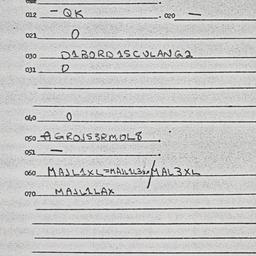 012 – QK . 020 –
021 0
030 D1BORD1SCVLANG2
031 0
060 0
050 AGROJS3RMDL8 .
051 – .
060 MAJL1XL=MAJL1L3XL/MAL3XL
070 MAJL1LAX